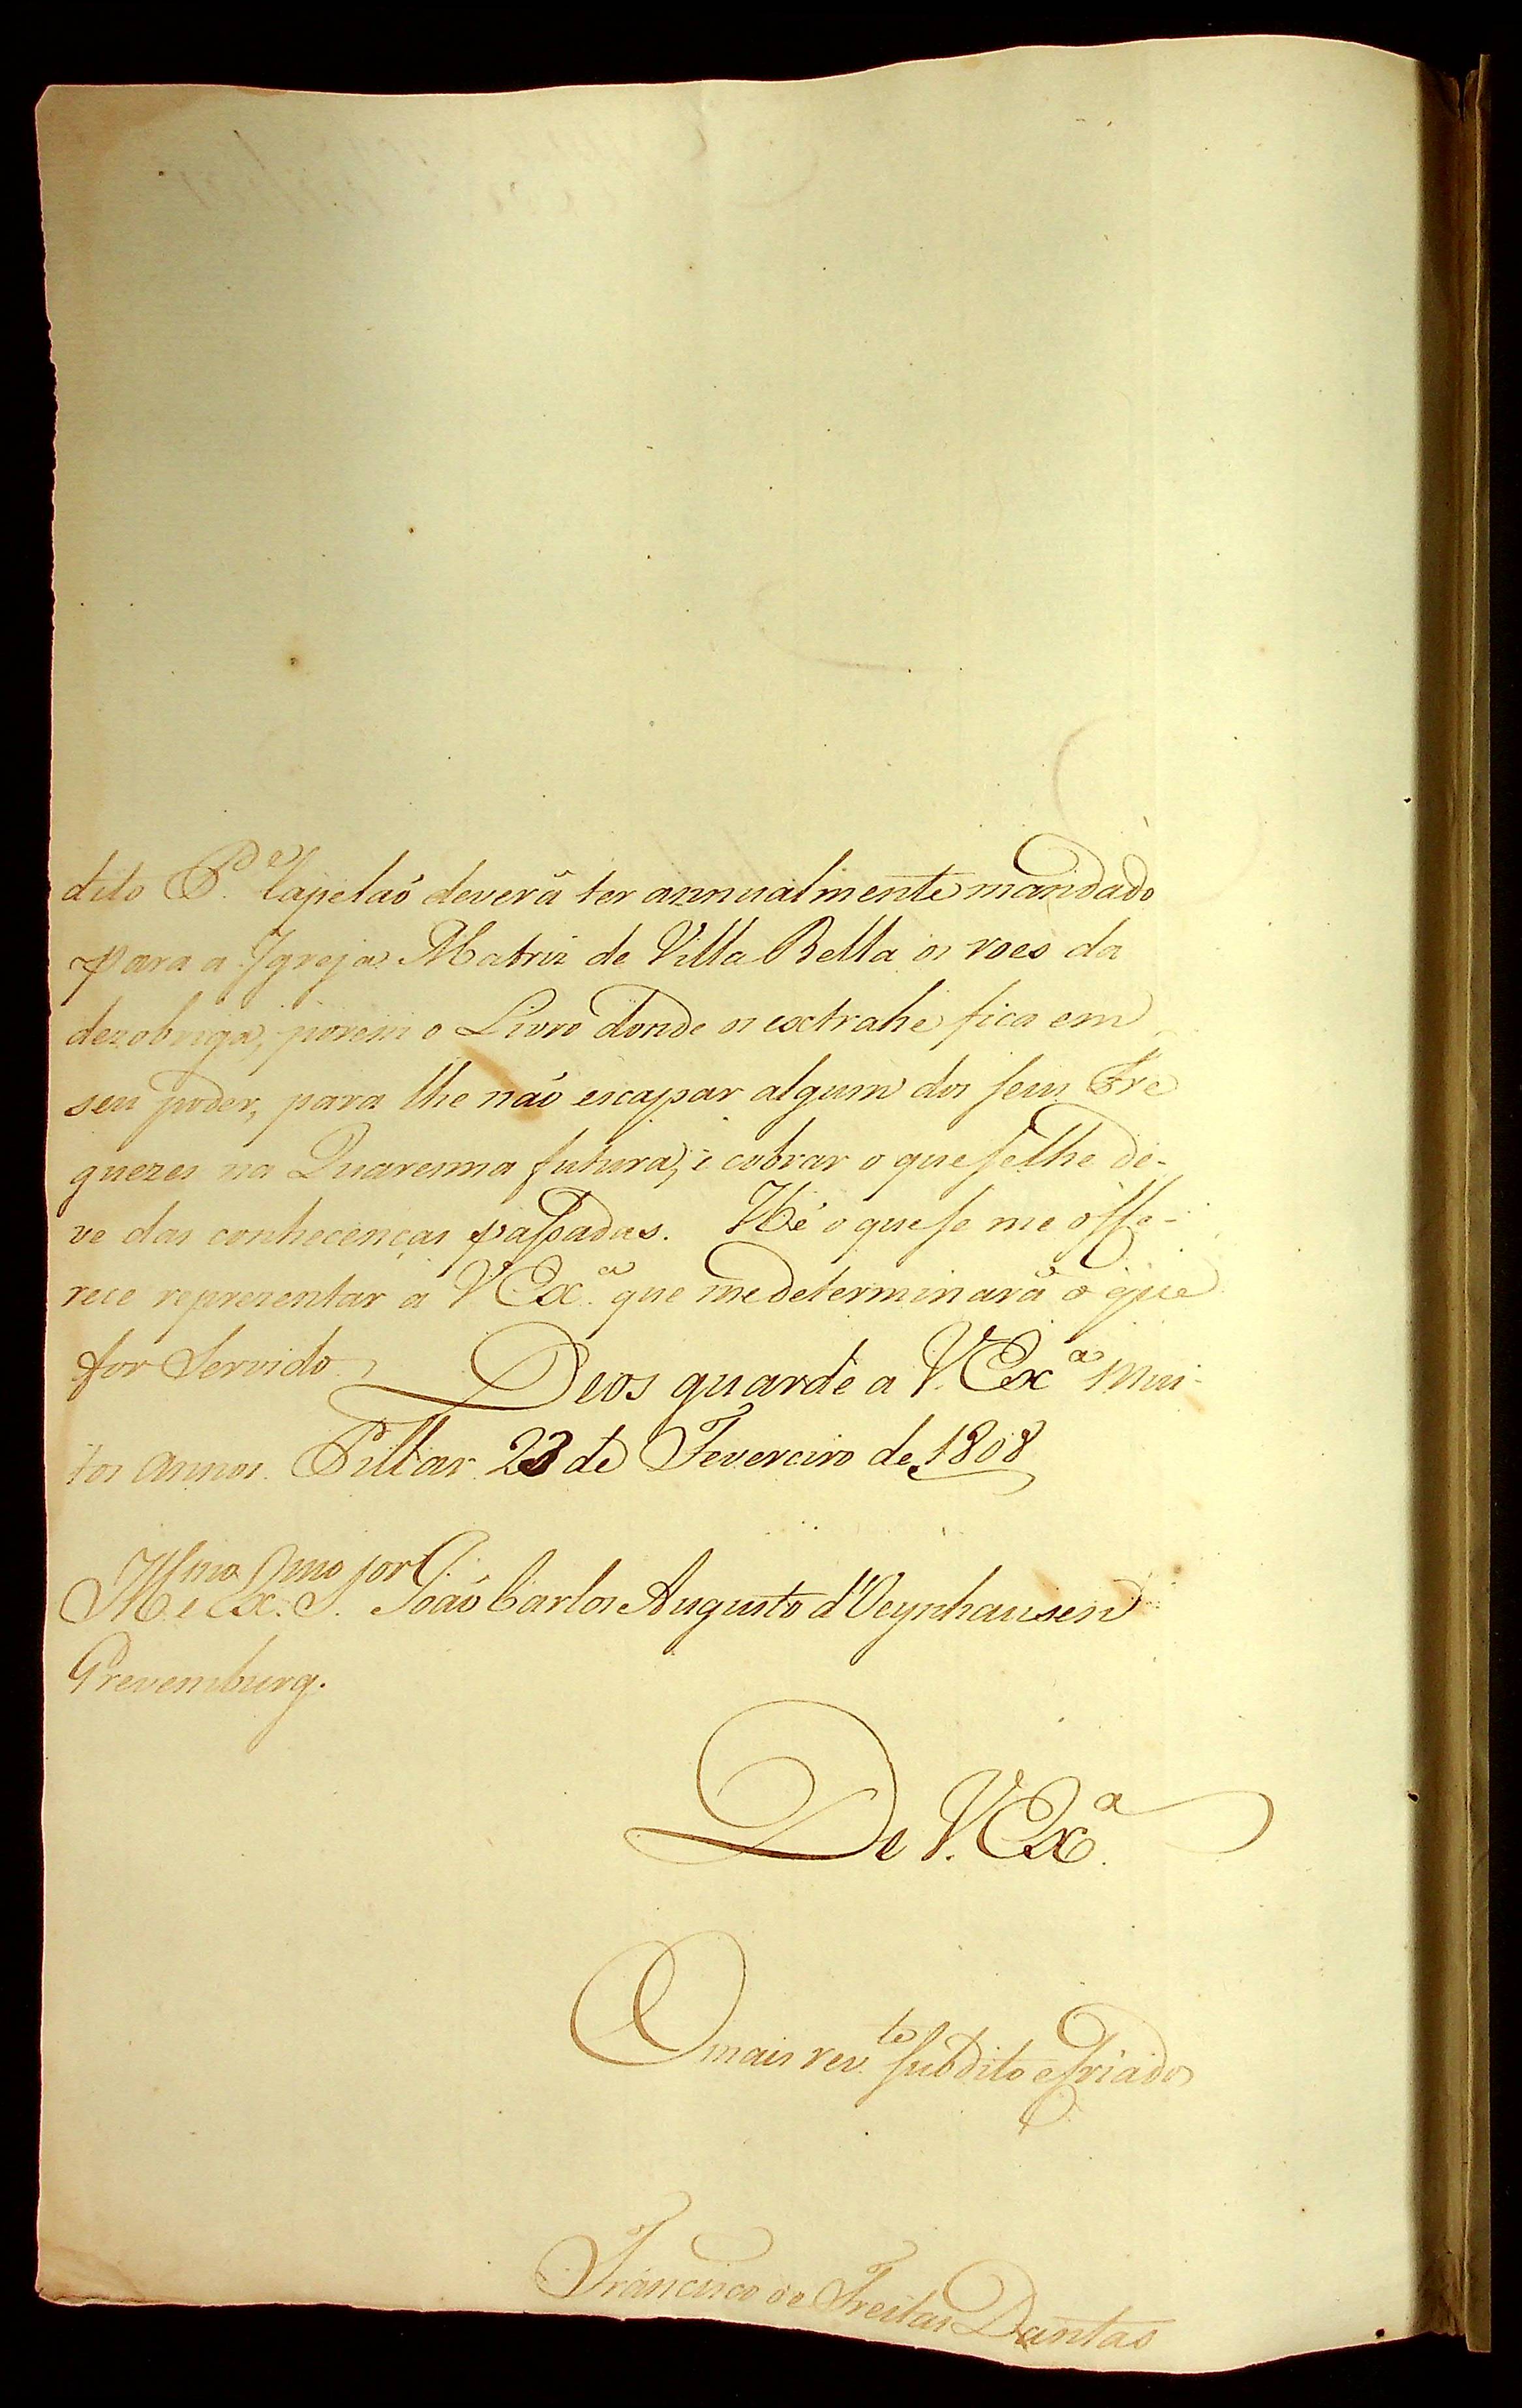 dito P.e Capelaõ deverá ter annualmente mandado
para a Igreja Matriz de Villa Bella os roes da
dezobriga, porem o Livro donde os extrahe fica em
seu poder, para lhe naõ escapar algum dos seus Fre
guezes na Quaresma futura, e cobrar o que se lhe de-
ve das conhecenças passadas. Hé o que se me offe-
rece reprezentar a V Ex.a que me determinará o que
for Servido. Deos guarde a V. Exa mui-
tos annos. Pillar 23 de Fevereiro de 1808
Illmo e Exmo Sor Joaõ Carlos Augusto d'Oeynhausen
Grevemburg.
De V. Exa.
O mais rev.te subdito e Criado
Francisco de Freitas Dantas